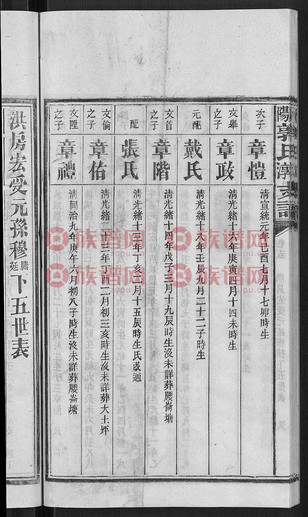 陽郭氏淳支譜
次子
章愷
清宣統元年己酉七月十七卯時生
文舉之子
章政
清光緒十六年庚寅四月十四未時生
元配
戴氏
清光緒十八年壬辰九月二十二子時生
文首之子
章階
清光緒十四年戊子三月十九辰時生沒未詳葬腰崙塘
配
張氏
清光緒十三年丁亥三月十五辰時生氏改適
文倫之子
章佑
清光緒二十三年丁酉二月初三亥時生沒未詳葬大土坪
文陞之子
章禮
清同治九年庚午六月初八子時生沒未詳葬腰崙塘
洪房宏受元孫穆
廷下五世表
族譜网